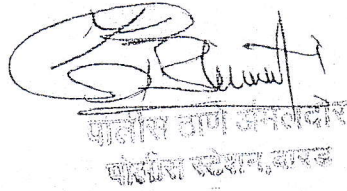 पोलीस ठाणे अंमलदार
पोलीस स्टेशन, बारड